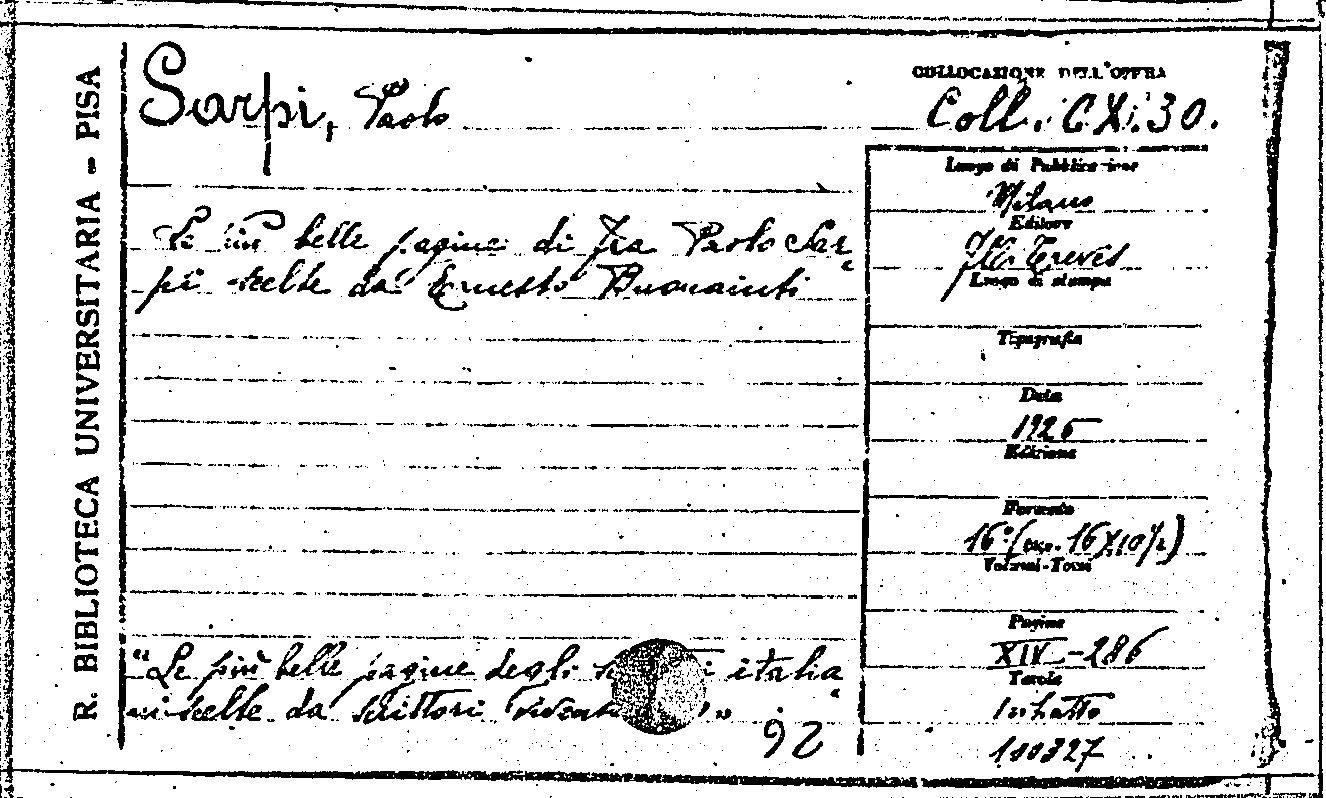 R. BIBLIOTECA UNIVERSITARIA - PISA
Sarpi, Paolo
COLLOCAZIONE DELL'OPERA
Coll. CXI.30.
Le più belle pagine di Fra Paolo Sar
pi scelte da Ernesto Buonaiuti
Luogo di Pubblicazione
Milano
Editore
Treves
Luogo di stampa
Tipografia
Data
1925
Edizione
Formato
16° (cm. 16X10½)
Volumi-Tomi
Pagine
XIV-286
Tavole
1 ritratto
100327
"Le più belle pagine degli italia
ni scelte da scrittori viventi"
26